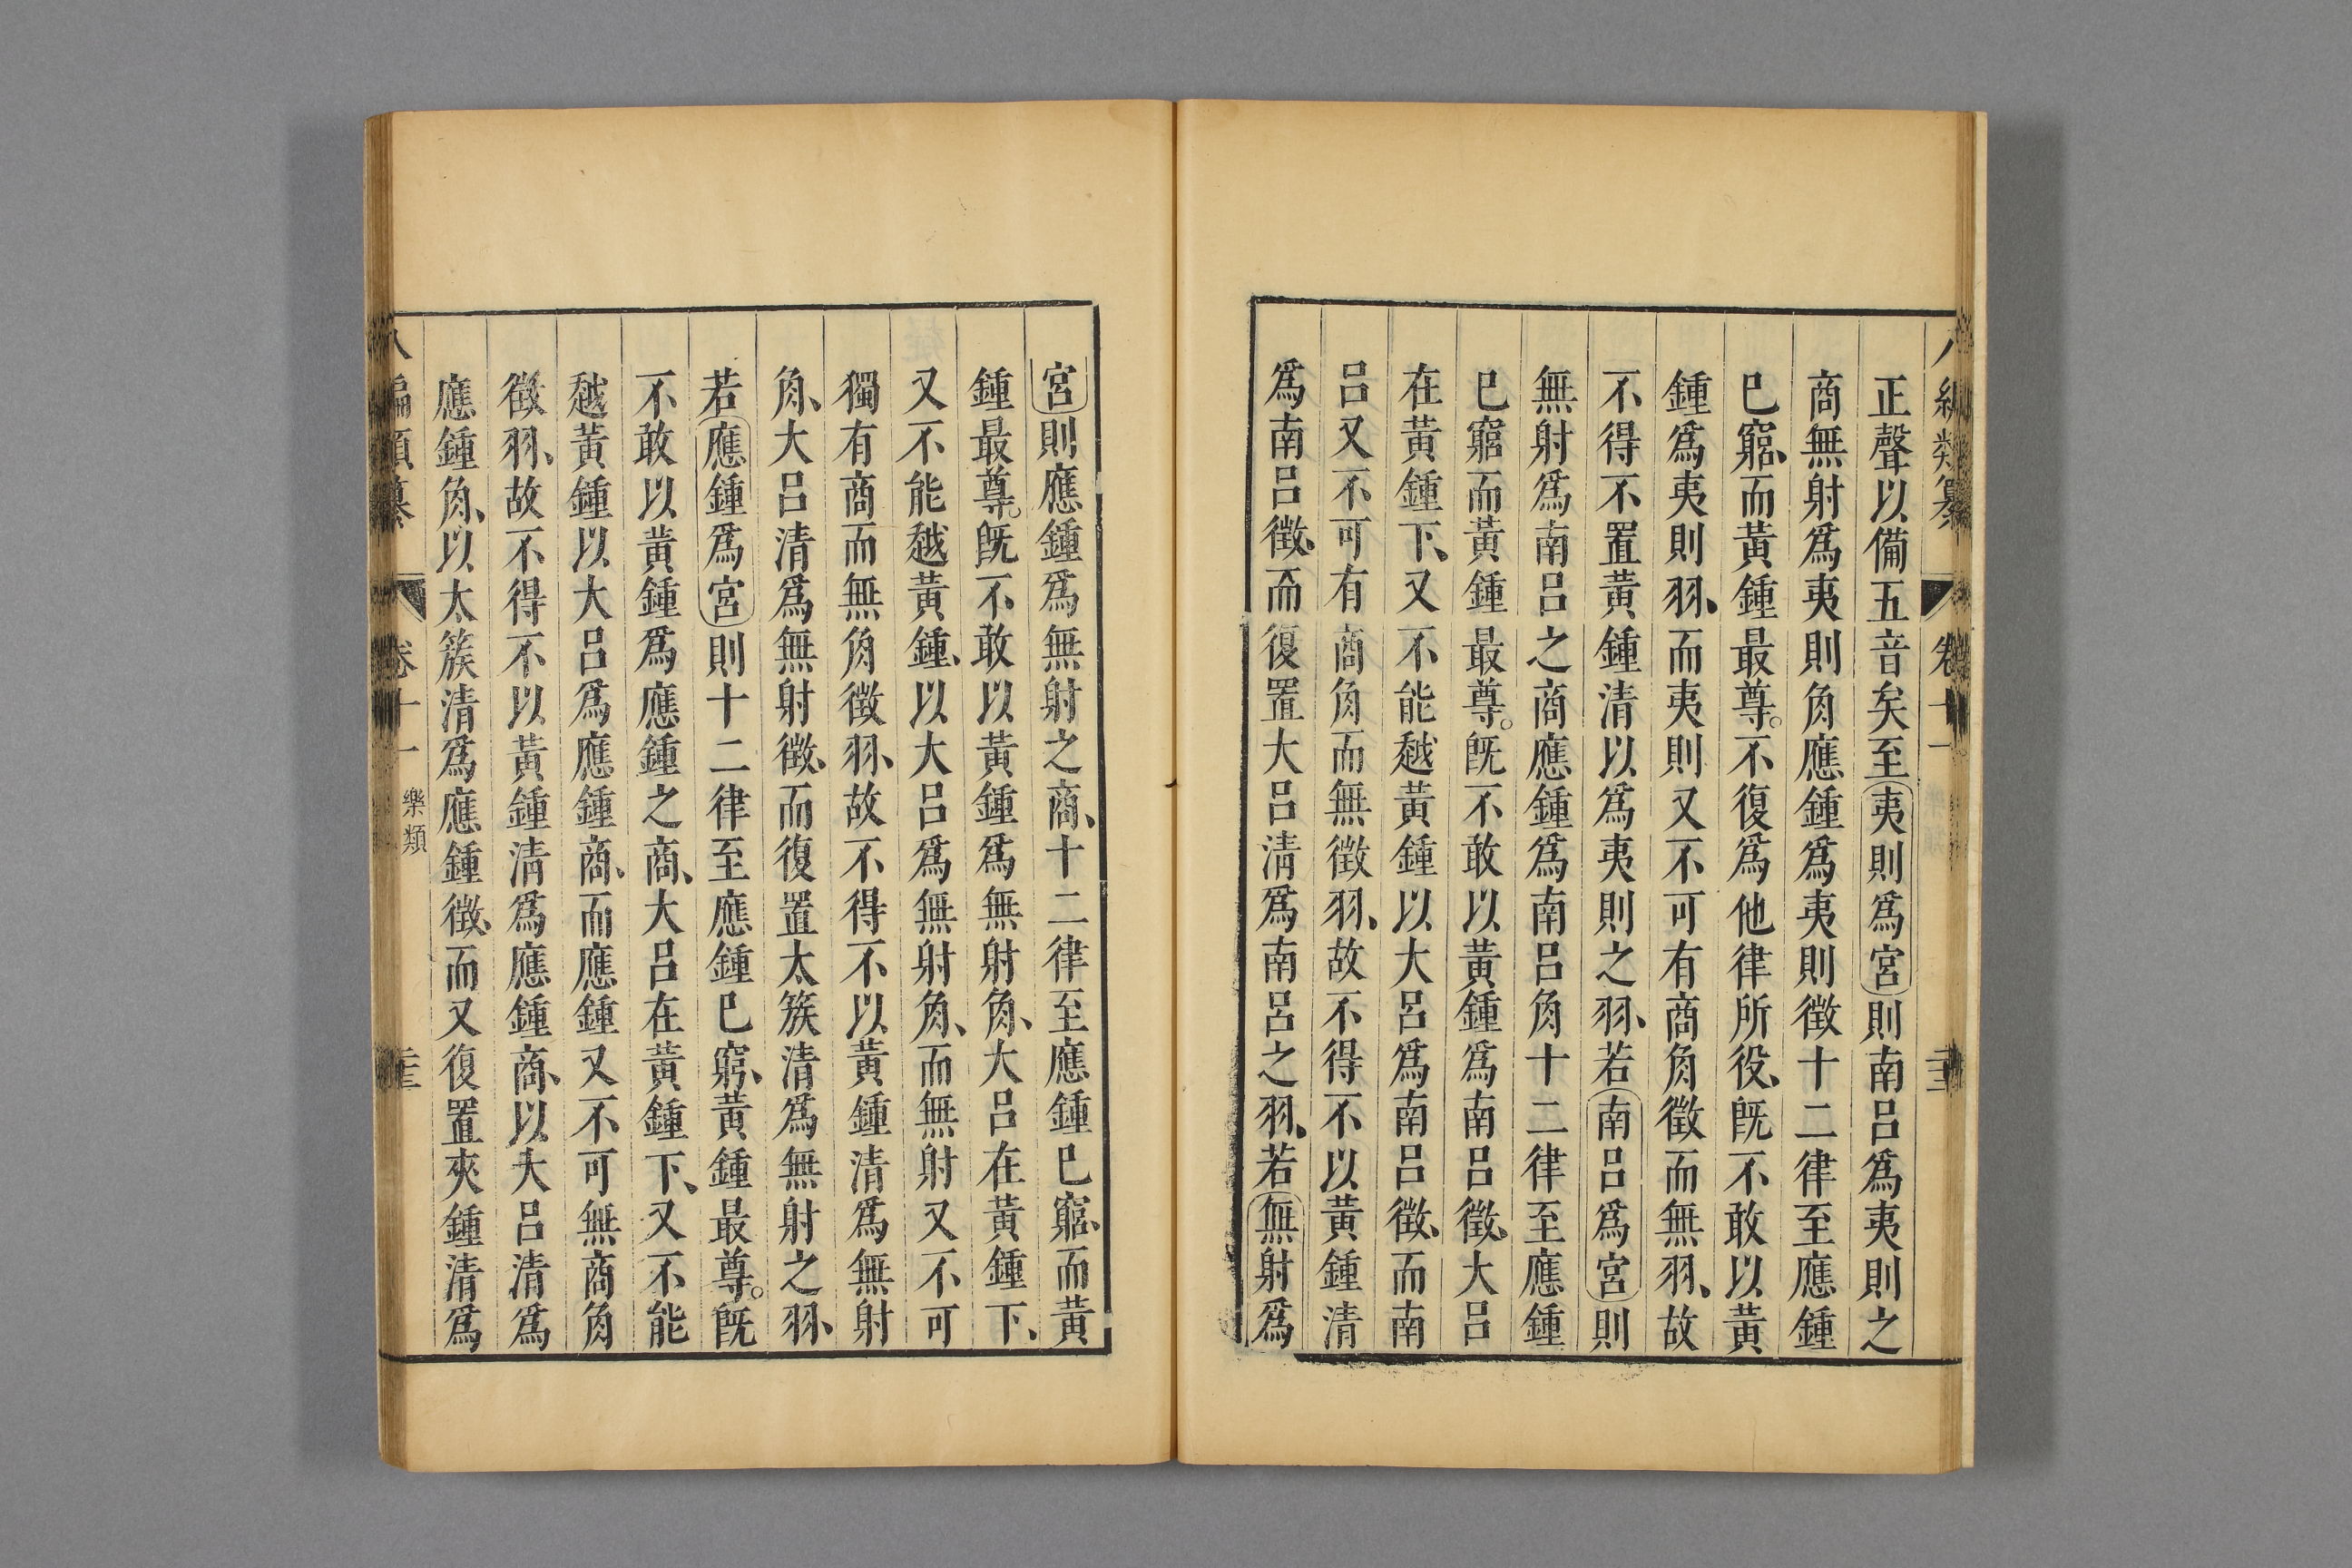 正聲以備五音矣至夷則爲宮則南呂爲夷則之
商無射爲夷則角應鍾爲夷則徵十二律至應鍾
已窮、而黃鍾最尊。不復爲他律所役、旣不敢以黃
鍾爲夷則羽、而夷則又不可有商角徵而無羽、故
不得不置黃鍾清以爲夷則之羽、若南呂爲宮則
無射爲南呂之商應鍾爲南呂角十二律至應鍾
已窮而黃鍾最尊。旣不敢以黃鍾爲南呂徵、大呂
在黃鍾下、又不能越黃鍾以大呂爲南呂徵、而南
呂又不可有商角而無徵羽、故不得不以黃鍾清
爲南呂徵、而復置大呂淸爲南呂之羽、若無射爲
宮則應鍾爲無射之商、十二律至應鍾已窮、而黃
鍾最尊。旣不敢以黃鍾爲無射角、大呂在黃鍾下、
又不能越黃鍾、以大呂爲無射角、而無射又不可
獨有商而無角徵羽、故不得不以黃鍾清爲無射
角、大呂清爲無射徵、而復置太簇清爲無射之羽、
若應鍾爲宮則十二律至應鍾已窮、黃鍾最尊。旣
不敢以黃鍾爲應鍾之商、大呂在黃鍾下、又不能
越黃鍾以大呂爲應鍾商、而應鍾又不可無商角
徵羽、故不得不以黃鍾清爲應鍾商、以大呂清爲
應鍾角、以太簇清爲應鍾徵、而又復置夾鍾清爲
八編類纂 卷十一 樂類